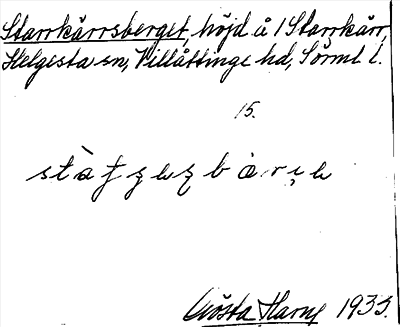 Starrkärrsberget, höjd å 1 Starrkärr,
Helgesta sn, Villåttinge hd, Sörml. l.
15.
Gösta Harne 1933.